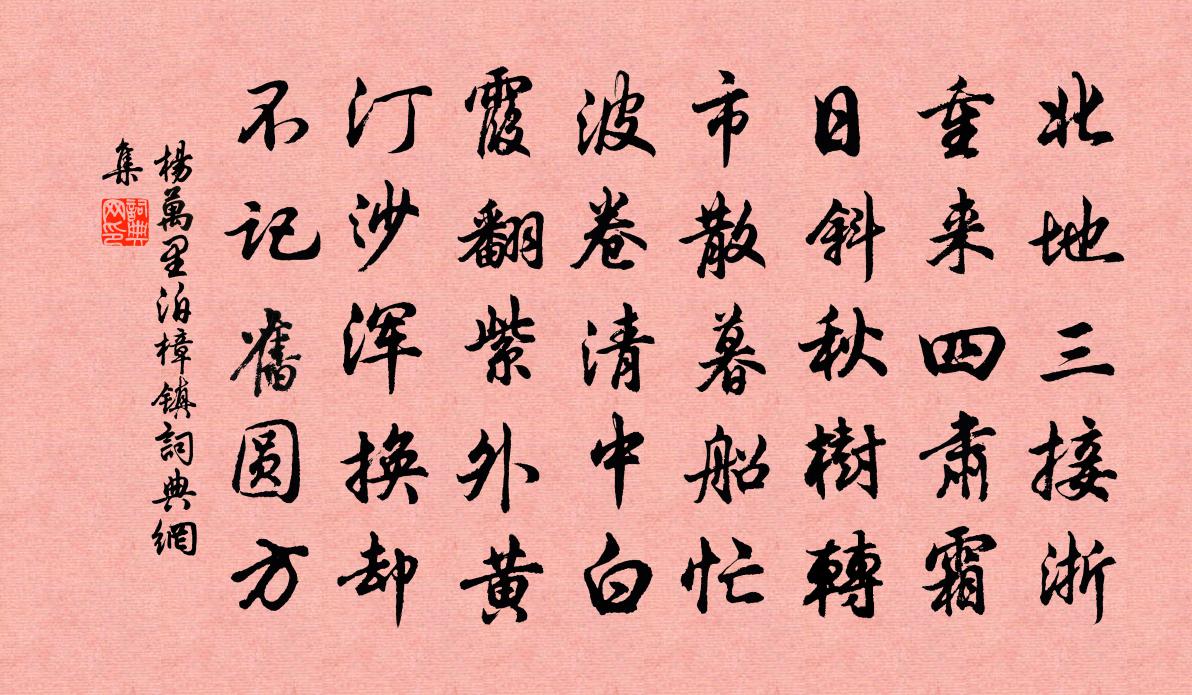 北地三接浙
重来四肃霜
日斜秋樹轉
市散暮船忙
波卷清中白
霞翻紫外黄
汀沙浑换却
不记舊圆方
楊萬里泊樟鎮詞典網
集
詞典
网印